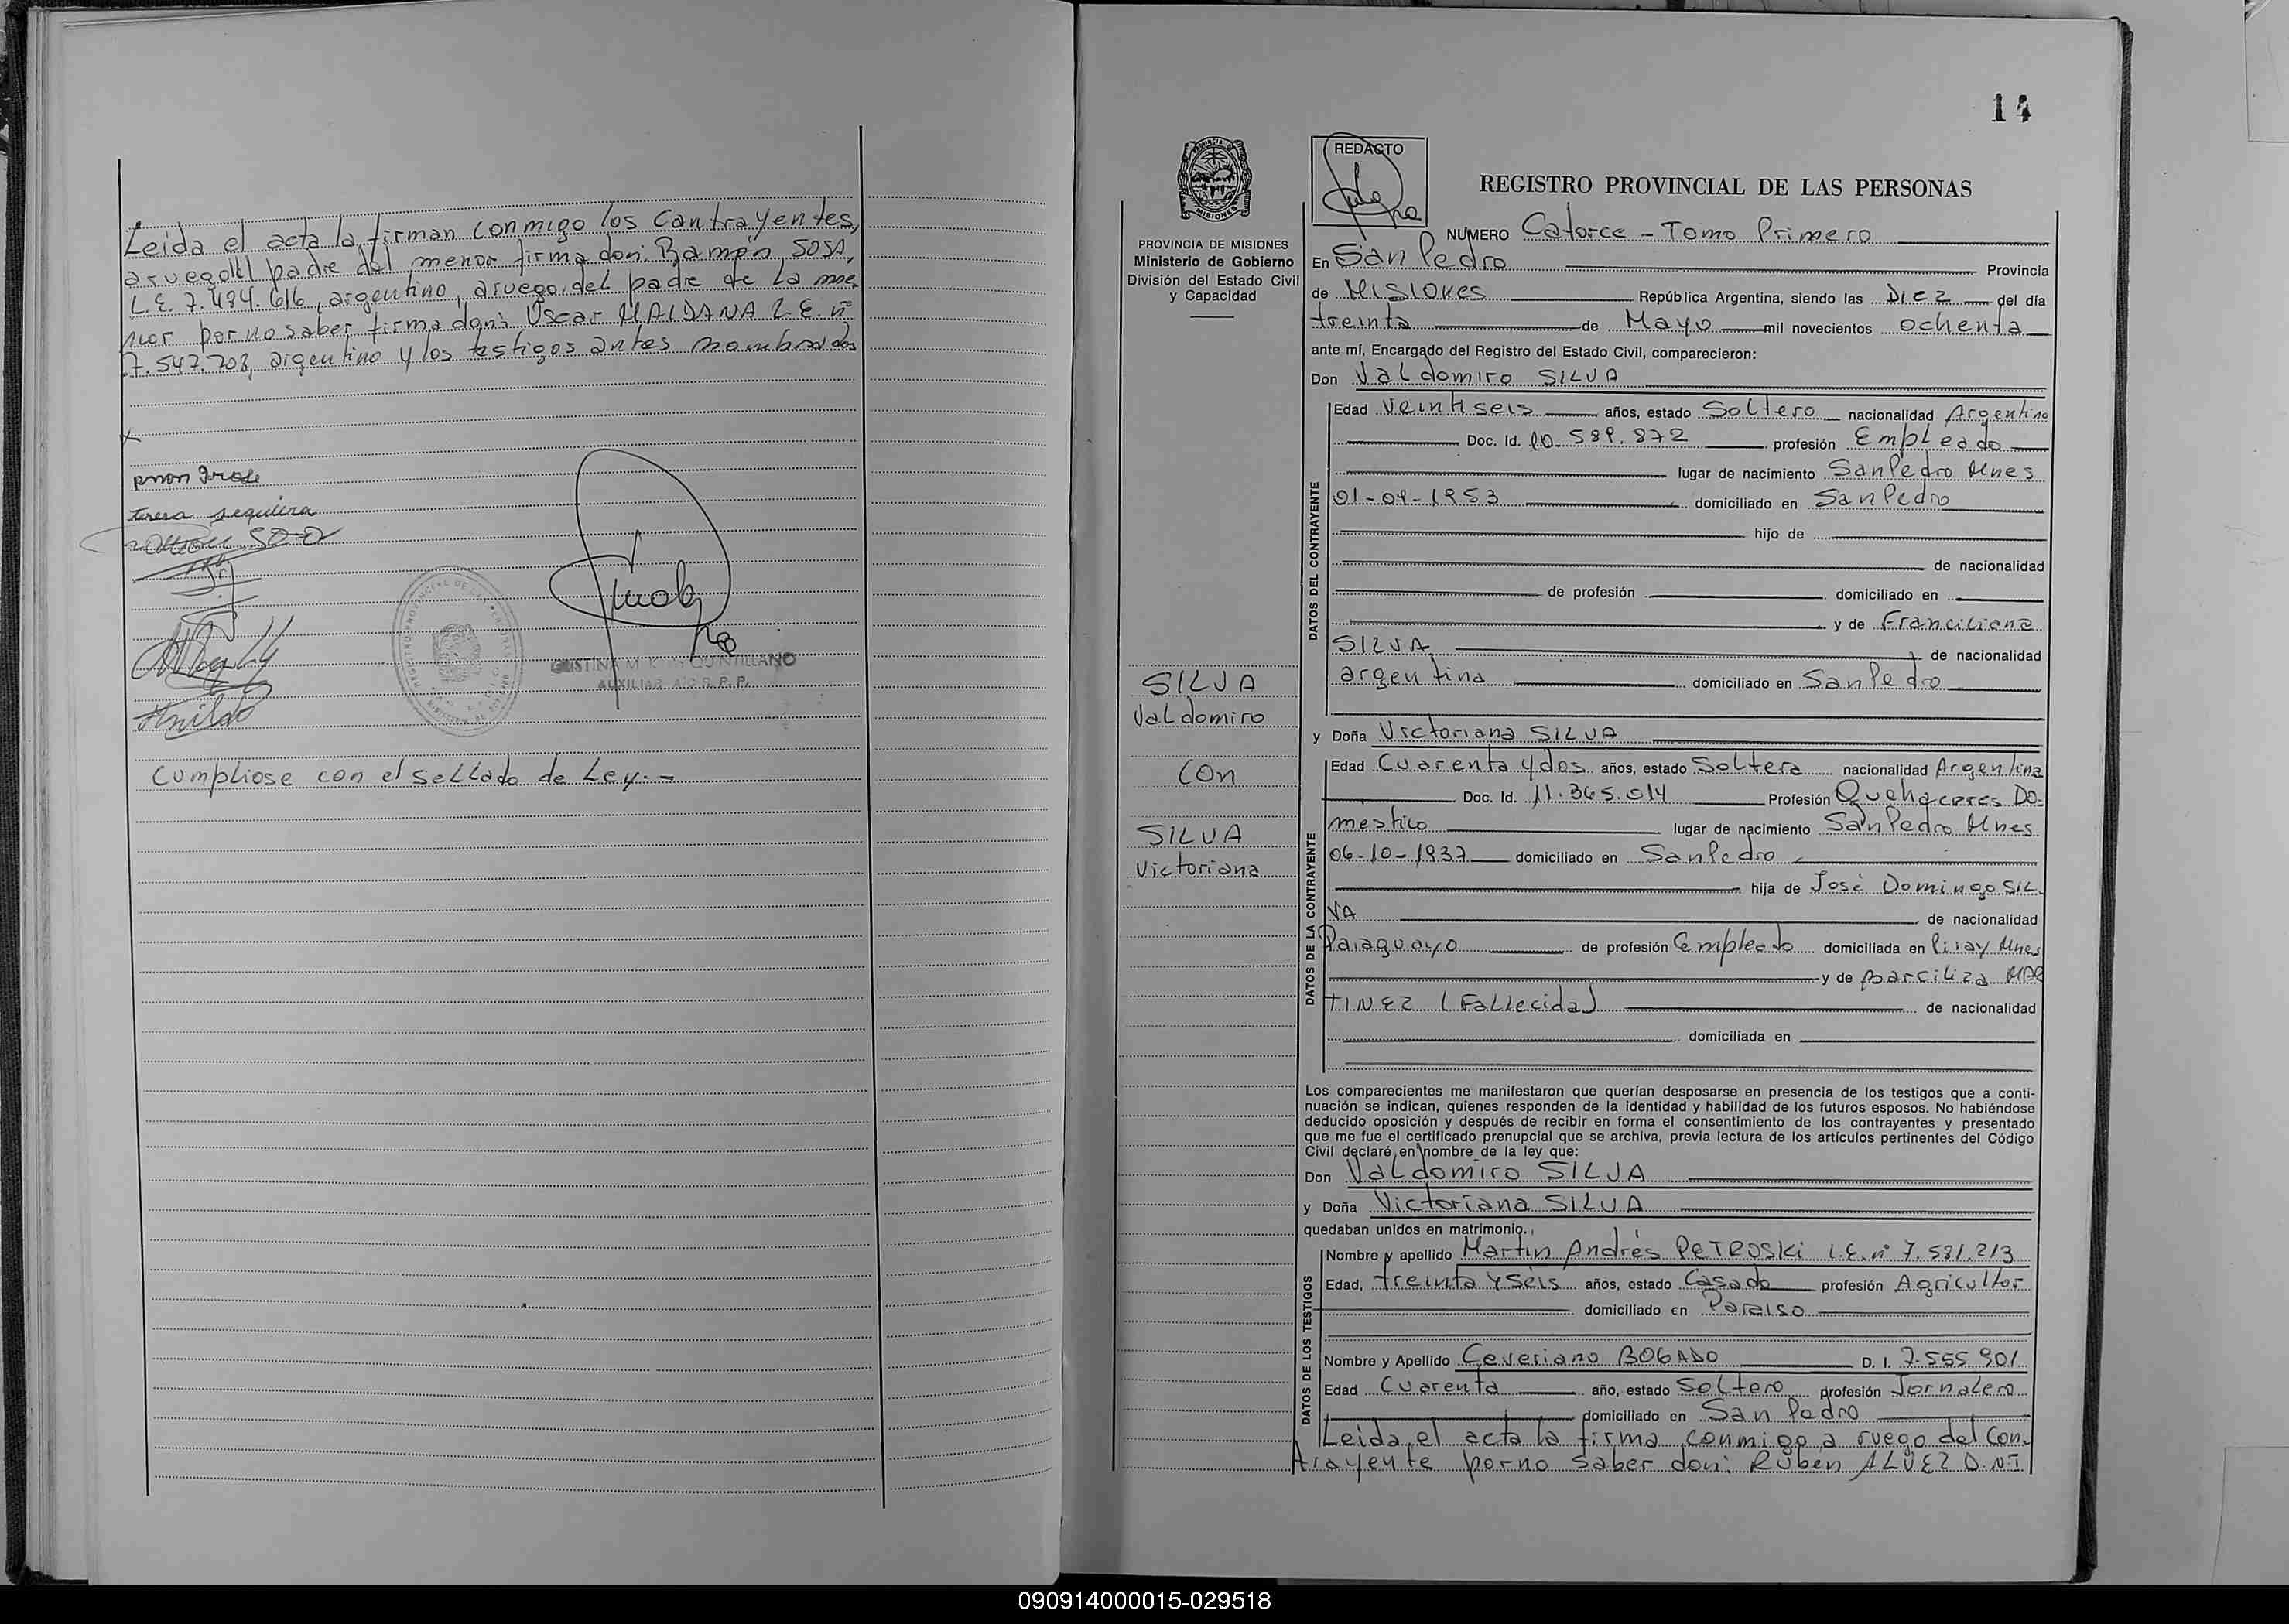 Leida el acta la firman conmigo los Contrayentes,
aruego del padre del menor firma don: Ramón SOSA,
L.E. 7.484.616, argentino, aruego del padre de la me
nor por no saber firma don: Oscar MAIDANA L.E. nº
7.547.708, argentino y los testigos antes nombrados
teresa sequeira
CRISTINA M. K. DE QUINTILLANO
AUXILIAR A/C R. P. P.
Cumpliose con el sellado de Ley.-
14
REDACTO
REGISTRO PROVINCIAL DE LAS PERSONAS
PROVINCIA DE MISIONES
Ministerio de Gobierno
División del Estado Civil
y Capacidad
NUMERO Catorce - Tomo Primero
En San Pedro Provincia
de Misiones República Argentina, siendo las Diez del día
treinta de Mayo mil novecientos ochenta
ante mí, Encargado del Registro del Estado Civil, comparecieron:
Don Valdomiro SILVA
DATOS DEL CONTRAYENTE
Edad Veintiseis años, estado Soltero nacionalidad Argentino
Doc. Id. 10.589.872 profesión Empleado
lugar de nacimiento San Pedro Mnes
01-09-1953 domiciliado en San Pedro
hijo de
de nacionalidad
de profesión domiciliado en
y de Franciliana
SILVA de nacionalidad
argentina domiciliado en San Pedro
SILVA
Valdomiro
CON
SILVA
Victoriana
y Doña Victoriana SILVA
DATOS DE LA CONTRAYENTE
Edad Cuarenta y dos años, estado Soltera nacionalidad Argentina
Doc. Id. 11.365.014 Profesión Quehaceres Do-
mestico lugar de nacimiento San Pedro Mnes
06-10-1937 domiciliado en San Pedro
hija de José Domingo SIL
VA de nacionalidad
Paraguayo de profesión Empleado domiciliada en Piray Mnes
y de Barciliza MAR
TINEZ (Fallecida) de nacionalidad
domiciliada en
Los comparecientes me manifestaron que querían desposarse en presencia de los testigos que a conti-
nuación se indican, quienes responden de la identidad y habilidad de los futuros esposos. No habiéndose
deducido oposición y después de recibir en forma el consentimiento de los contrayentes y presentado
que me fue el certificado prenupcial que se archiva, previa lectura de los artículos pertinentes del Código
Civil declaré en nombre de la ley que:
Don Valdomiro SILVA
y Doña Victoriana SILVA
quedaban unidos en matrimonio.
DATOS DE LOS TESTIGOS
Nombre y apellido Martin Andrés PETROSKI L.E. nº 7.581.213
Edad, treinta y seis años, estado Casado profesión Agricultor
domiciliado en Paraiso
Nombre y Apellido Ceveriano BOGADO D. I. 7.555.901
Edad Cuarenta año, estado Soltero profesión Jornalero
domiciliado en San Pedro
Leida el acta la firma conmigo a ruego del Con-
trayente por no saber don: Rúben ALVEZ D.N.I.
090914000015-029518